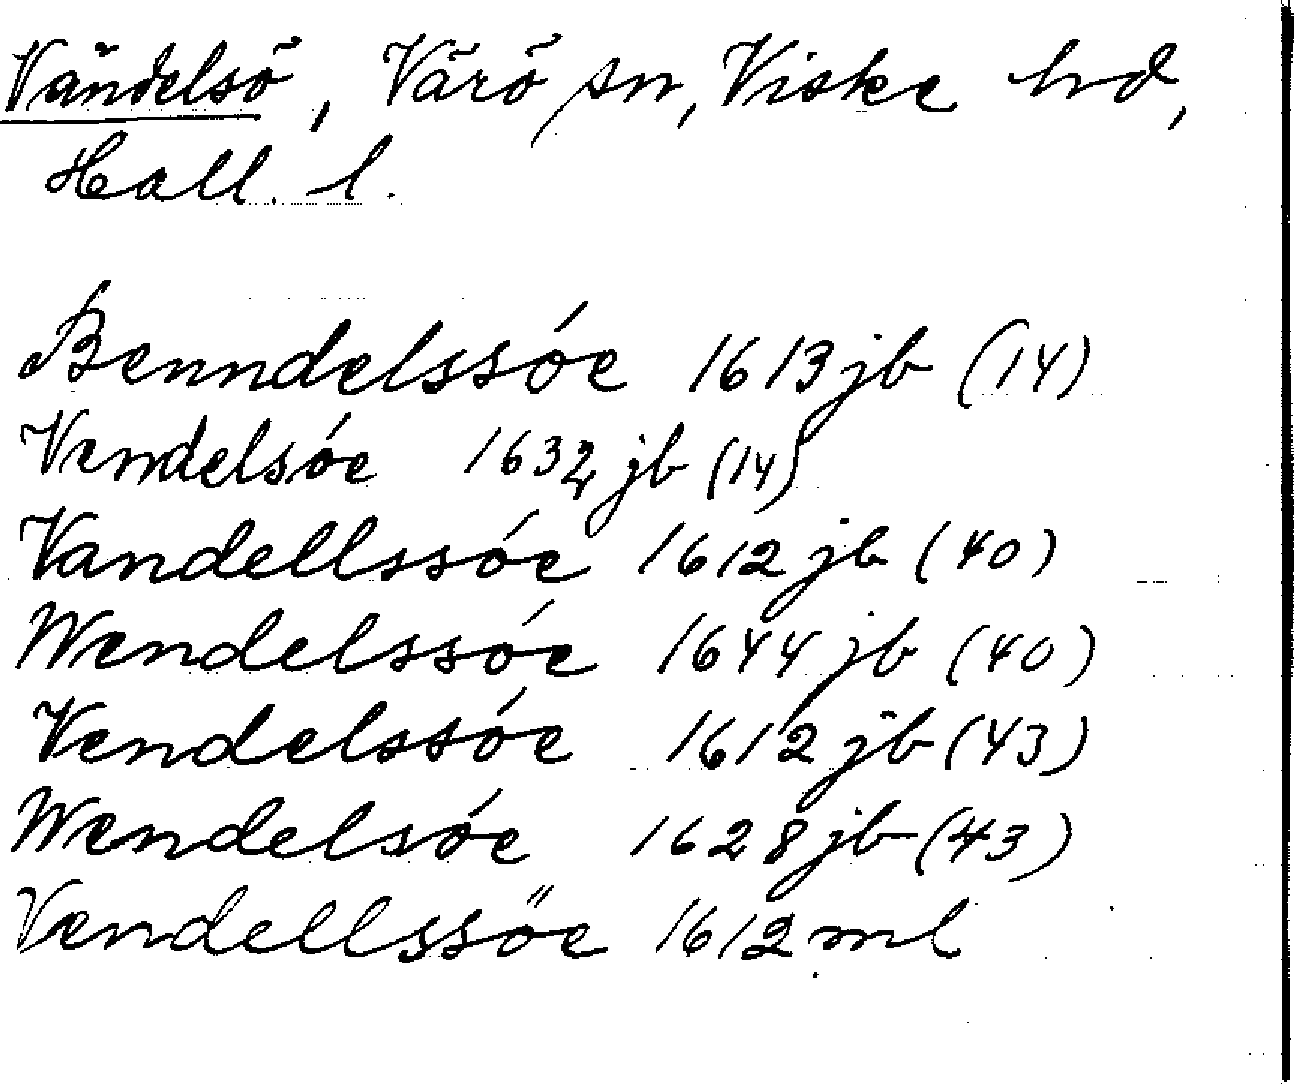 Vändelsö, Värö sn, Viske hd,
Hall. l.
Benndelssóe 1613 jb (14)
Vendelsóe 1632 jb (14)
Vandellssóe 1612 jb (40)
Wendelssóe 1644 jb (40)
Vendelssóe 1612 jb (43)
Wendelsóe 1628 jb (43)
Vendellssöe 1612 ml